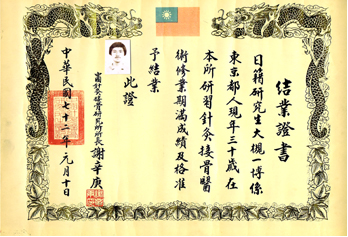 結業證書
日籍研究生大槻一博係
東京都人現年三十歲在
本所研習針灸接骨醫
術修業期滿成績及格准
予結業
此證
所長謝辛庚
中華民國七十二年元月十日